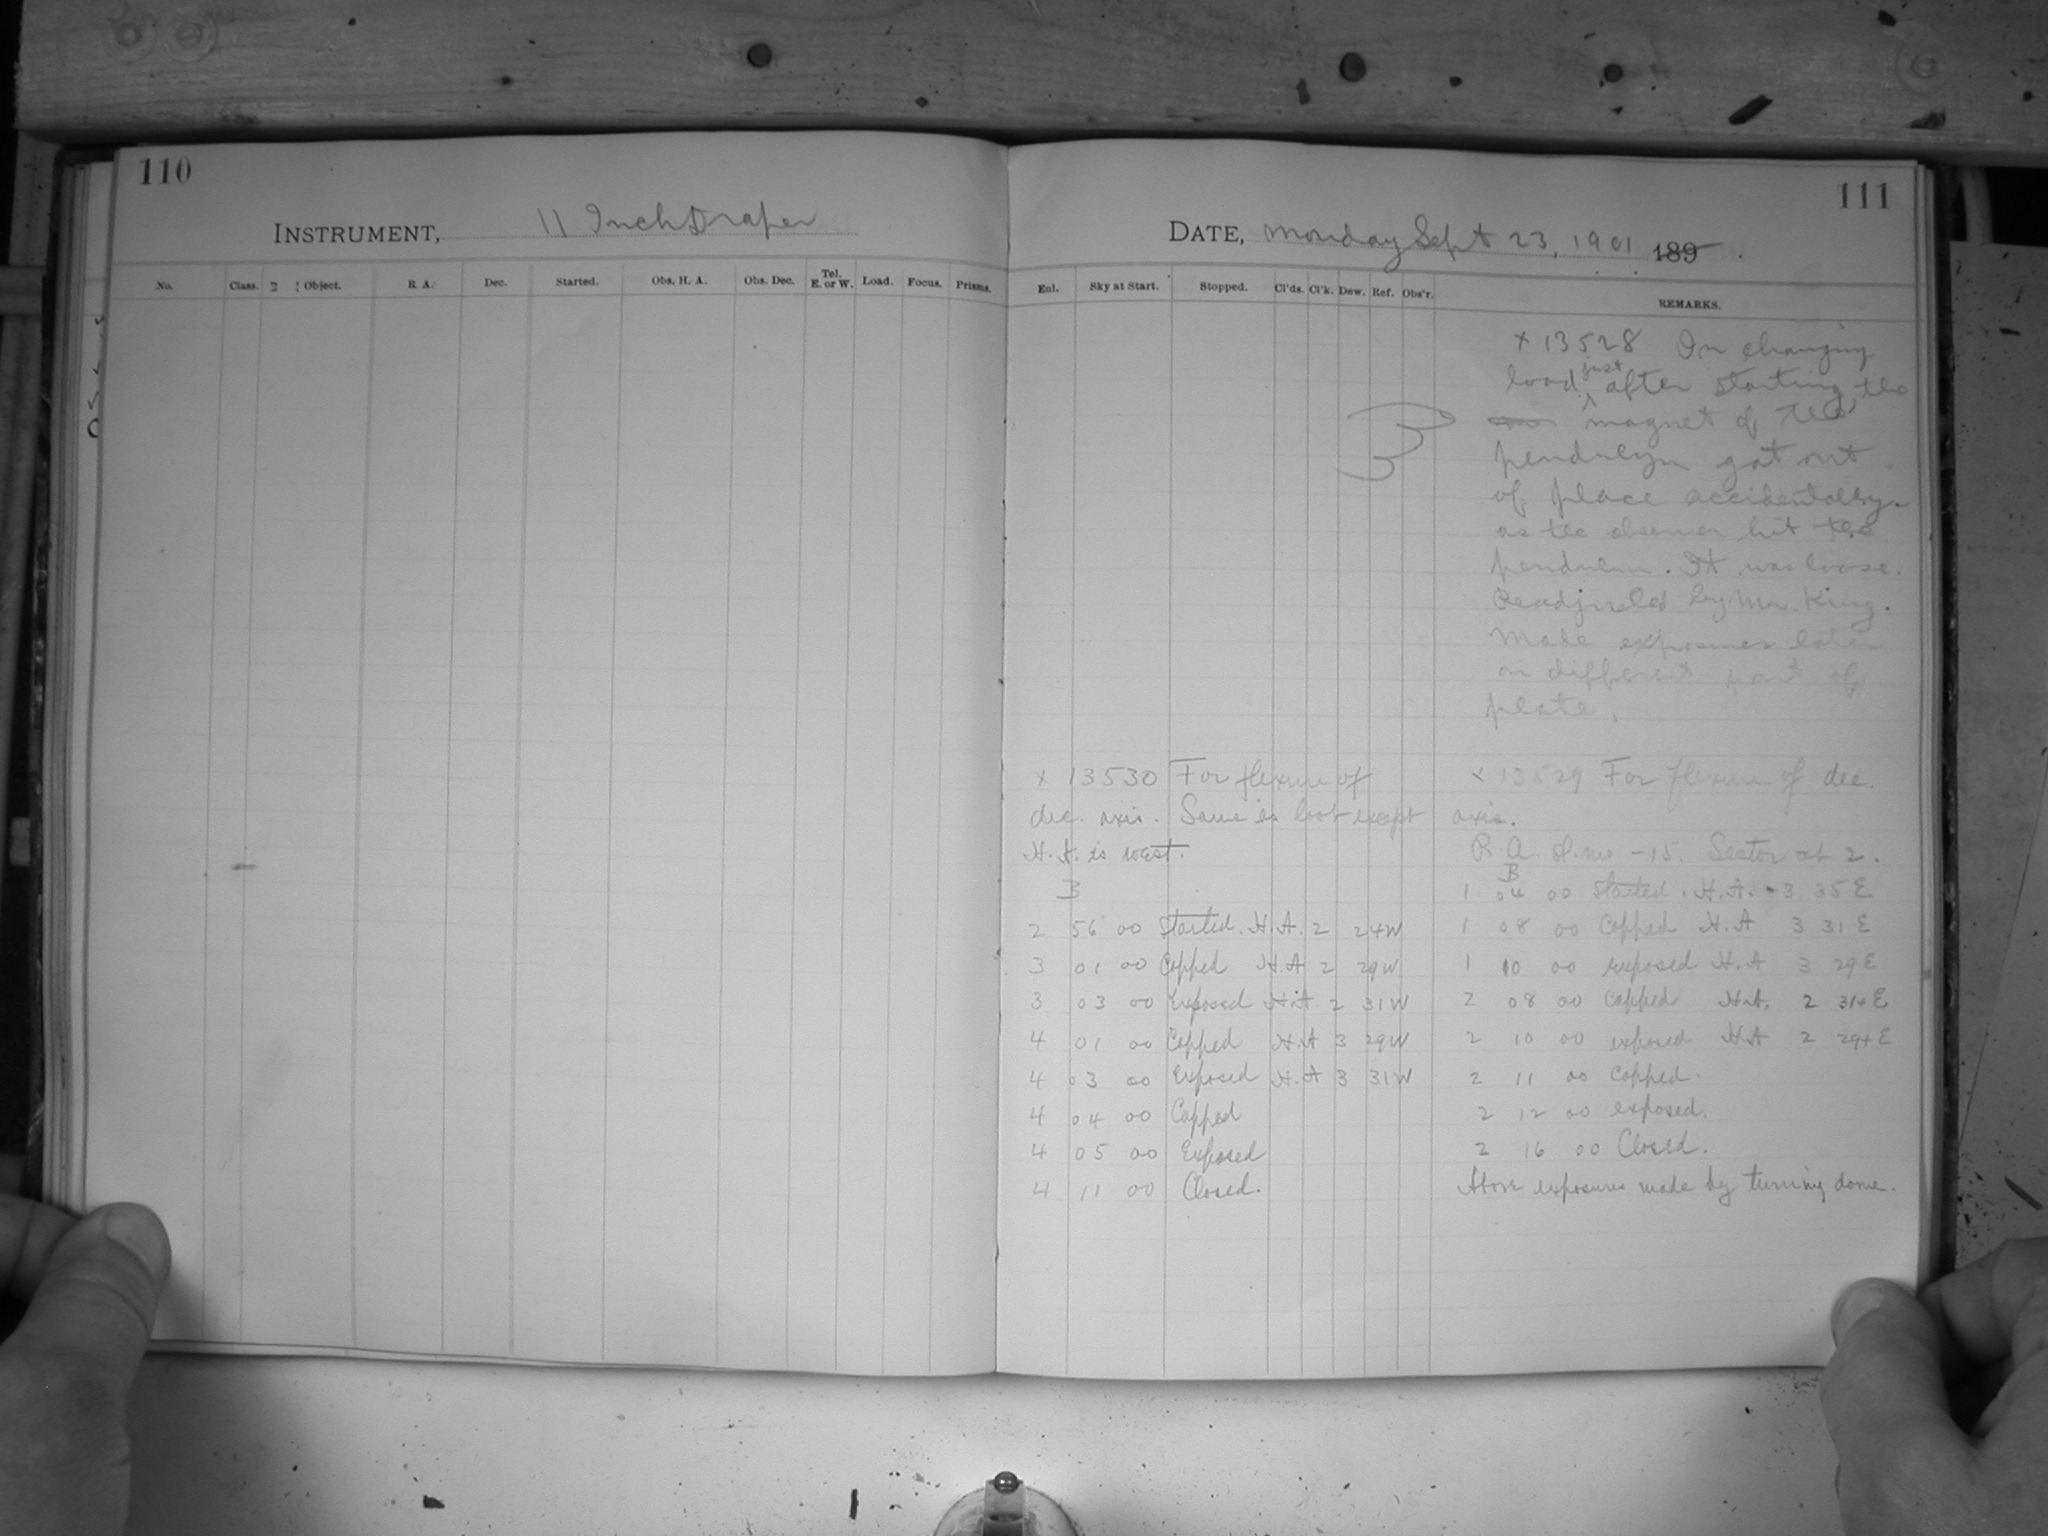 110
INSTRUMENT, 11 Inch Draper
No. Class. Object. R. A. Dec. Started. Obs. H. A. Obs. Dec. Tel. E. or W. Load. Focus. Prisms.
111
DATE, Monday Sept 23, 1901 189
Enl. Sky at Start. Stopped. Cl'ds. Cl'k. Dew. Ref. Obs'r. REMARKS.
x 13528 On changing
load just after starting, the
magnet of the
pendulum got out
of place accidentally
as the observer hit the
pendulum. It was loose.
Readjusted by Mr. King.
Made exposures later
on different part of
plate.
B
x 13530 For flexure of
dec. axis. Same as last except
H.A. is west.
B
2 56 00 Started. H.A. 2 24W
3 01 00 Capped H.A 2 29W
3 03 00 Exposed H.A 2 31W
4 01 00 Capped H.A 3 29W
4 03 00 Exposed H.A 3 31W
4 04 00 Capped
4 05 00 Exposed
4 11 00 Closed.
x 13529 For flexure of dec.
axis.
R.A. -15. Sector at 2.
B
1 04 00 Started. H.A. -3 35E
1 08 00 Capped H.A 3 31E
1 10 00 exposed H.A 3 29E
2 08 00 capped H.A. 2 31+E
2 10 00 exposed H.A 2 29+E
2 11 00 capped.
2 12 00 exposed.
2 16 00 Closed.
Above exposures made by turning dome.